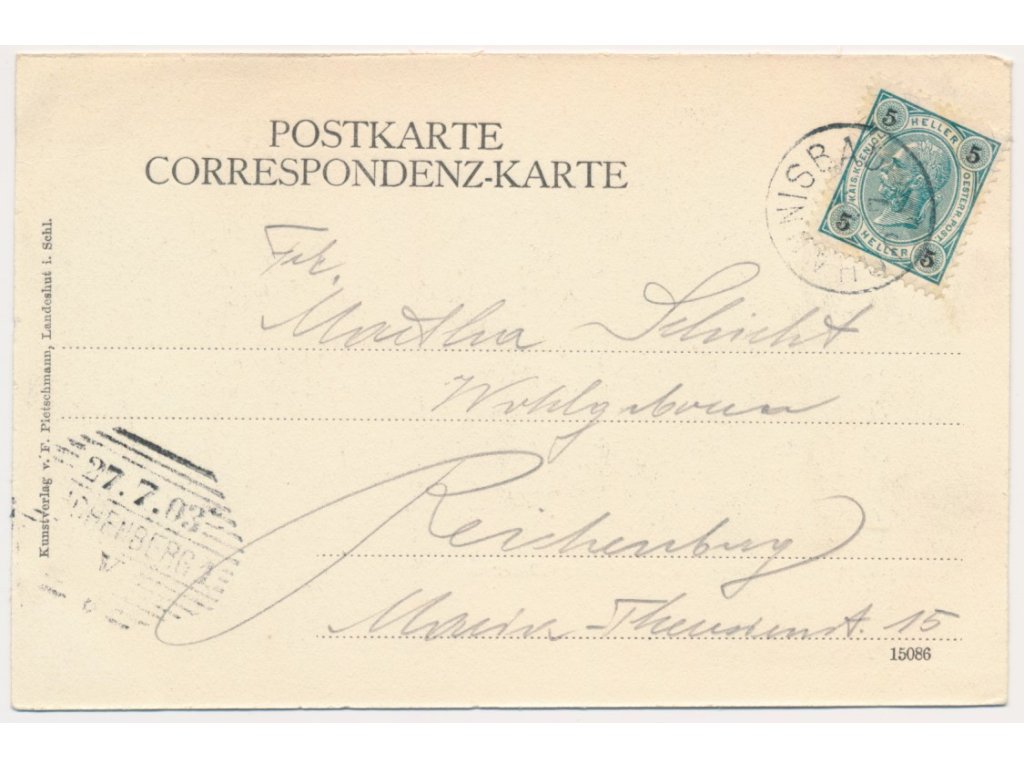 POSTKARTE
CORRESPONDENZ-KARTE
5 HELLER 5
KAIS. KOENIGL. OESTERR. POST.
5 HELLER 5
Frl.
Martha Schicht
Wohlgeboren
Reichenberg
Maria-Theresienst. 15
15086
Kunstverlag v. F. Pietschmann, Landeshut i. Schl.
27.7.03
ICHENBERG 1